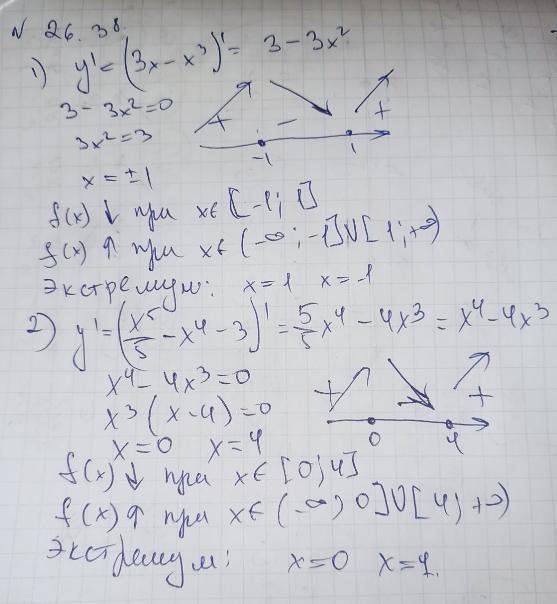 N 26.38.
1) y' = (3x - x³)' = 3 - 3x²
3 - 3x² = 0
3x² = 3
x = ±1
+ - +
-1 1
f(x) ↓ при x ∈ [-1; 1]
f(x) ↑ при x ∈ (-∞; -1] U [1; +∞)
Экстремум: x = 1 x = -1
2) y' = (x⁵/5 - x⁴ - 3)' = 5/5 x⁴ - 4x³ = x⁴ - 4x³
x⁴ - 4x³ = 0
x³(x - 4) = 0
x = 0 x = 4
+ - +
0 4
f(x) ↓ при x ∈ [0; 4]
f(x) ↑ при x ∈ (-∞; 0] U [4; +∞)
Экстремум: x = 0 x = 4.